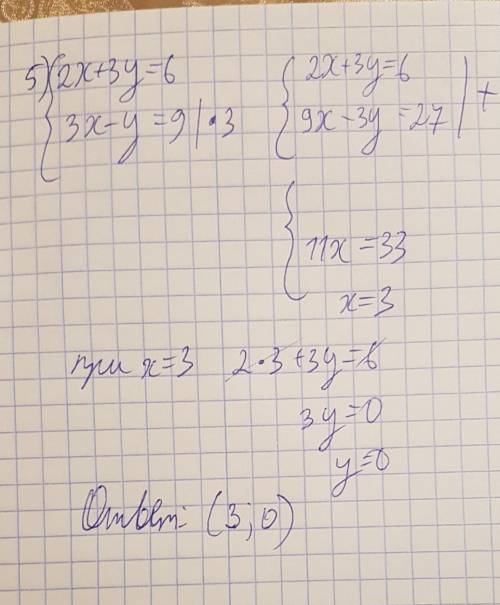 5) { 2x+3y=6
3x-y=9 | •3
{ 2x+3y=6
9x-3y=27 | +
{ 11x=33
x=3
при x=3 2•3+3y=6
3y=0
y=0
Ответ: (3;0)